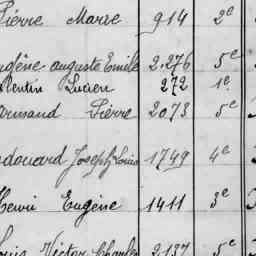 Pierre Marre 914 2e
Eugène Auguste Emile 2.276 5e
Valentin Lucien 272 1e
Armand Pierre 2073 5e
Edouard Joseph Louis 1749 4e
Henri Eugène 1411 3e
Louis Victor Charles 2.137 5e